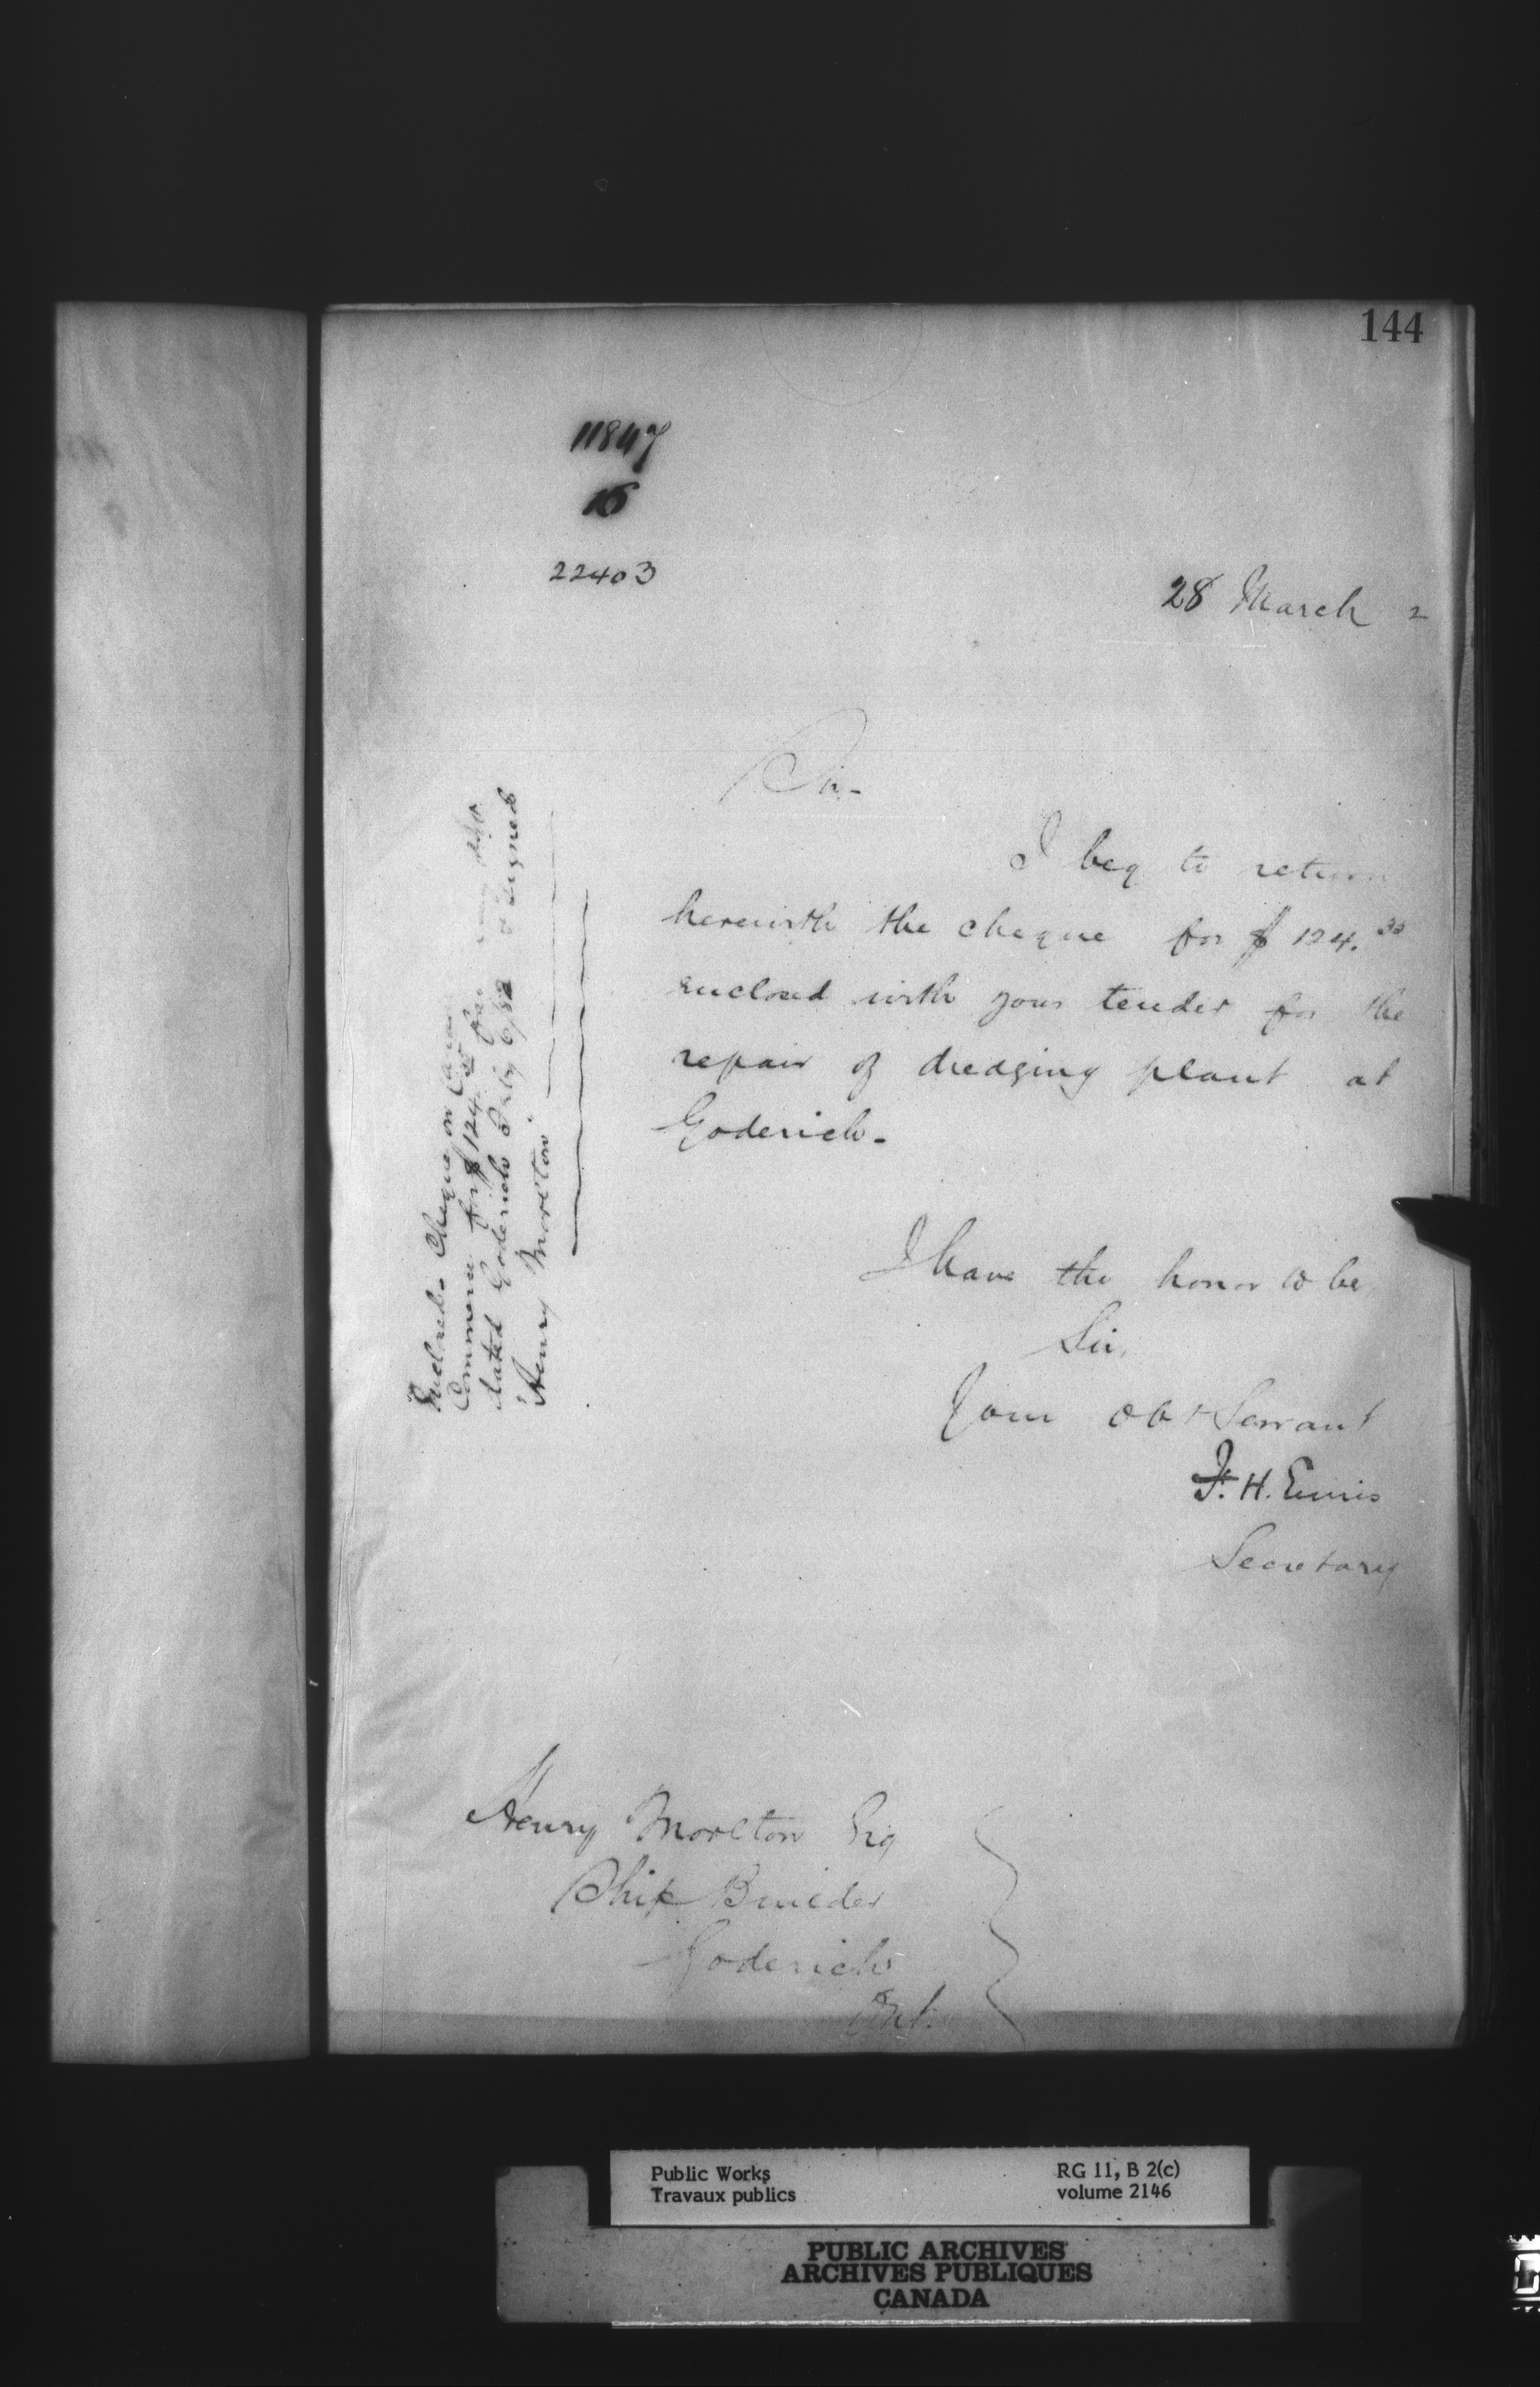 144
11847
16
22403
28 March 2
Sir-
I beg to return
herewith the cheque for $ 124.
enclosed with your tender for the
repair of dredging plant at
Goderich-
I have the honor to be,
Sir,
Your obt Servant
F. H. Ennis
Secretary
Enclosed- Cheque on
Commerce for $124.
dated Goderich 6/82 & signed
"Henry Morlton"
Henry Morlton Esq
Ship Builder
Goderich
Ont.
Public Works
Travaux publics
RG 11, B 2(c)
volume 2146
PUBLIC ARCHIVES
ARCHIVES PUBLIQUES
CANADA